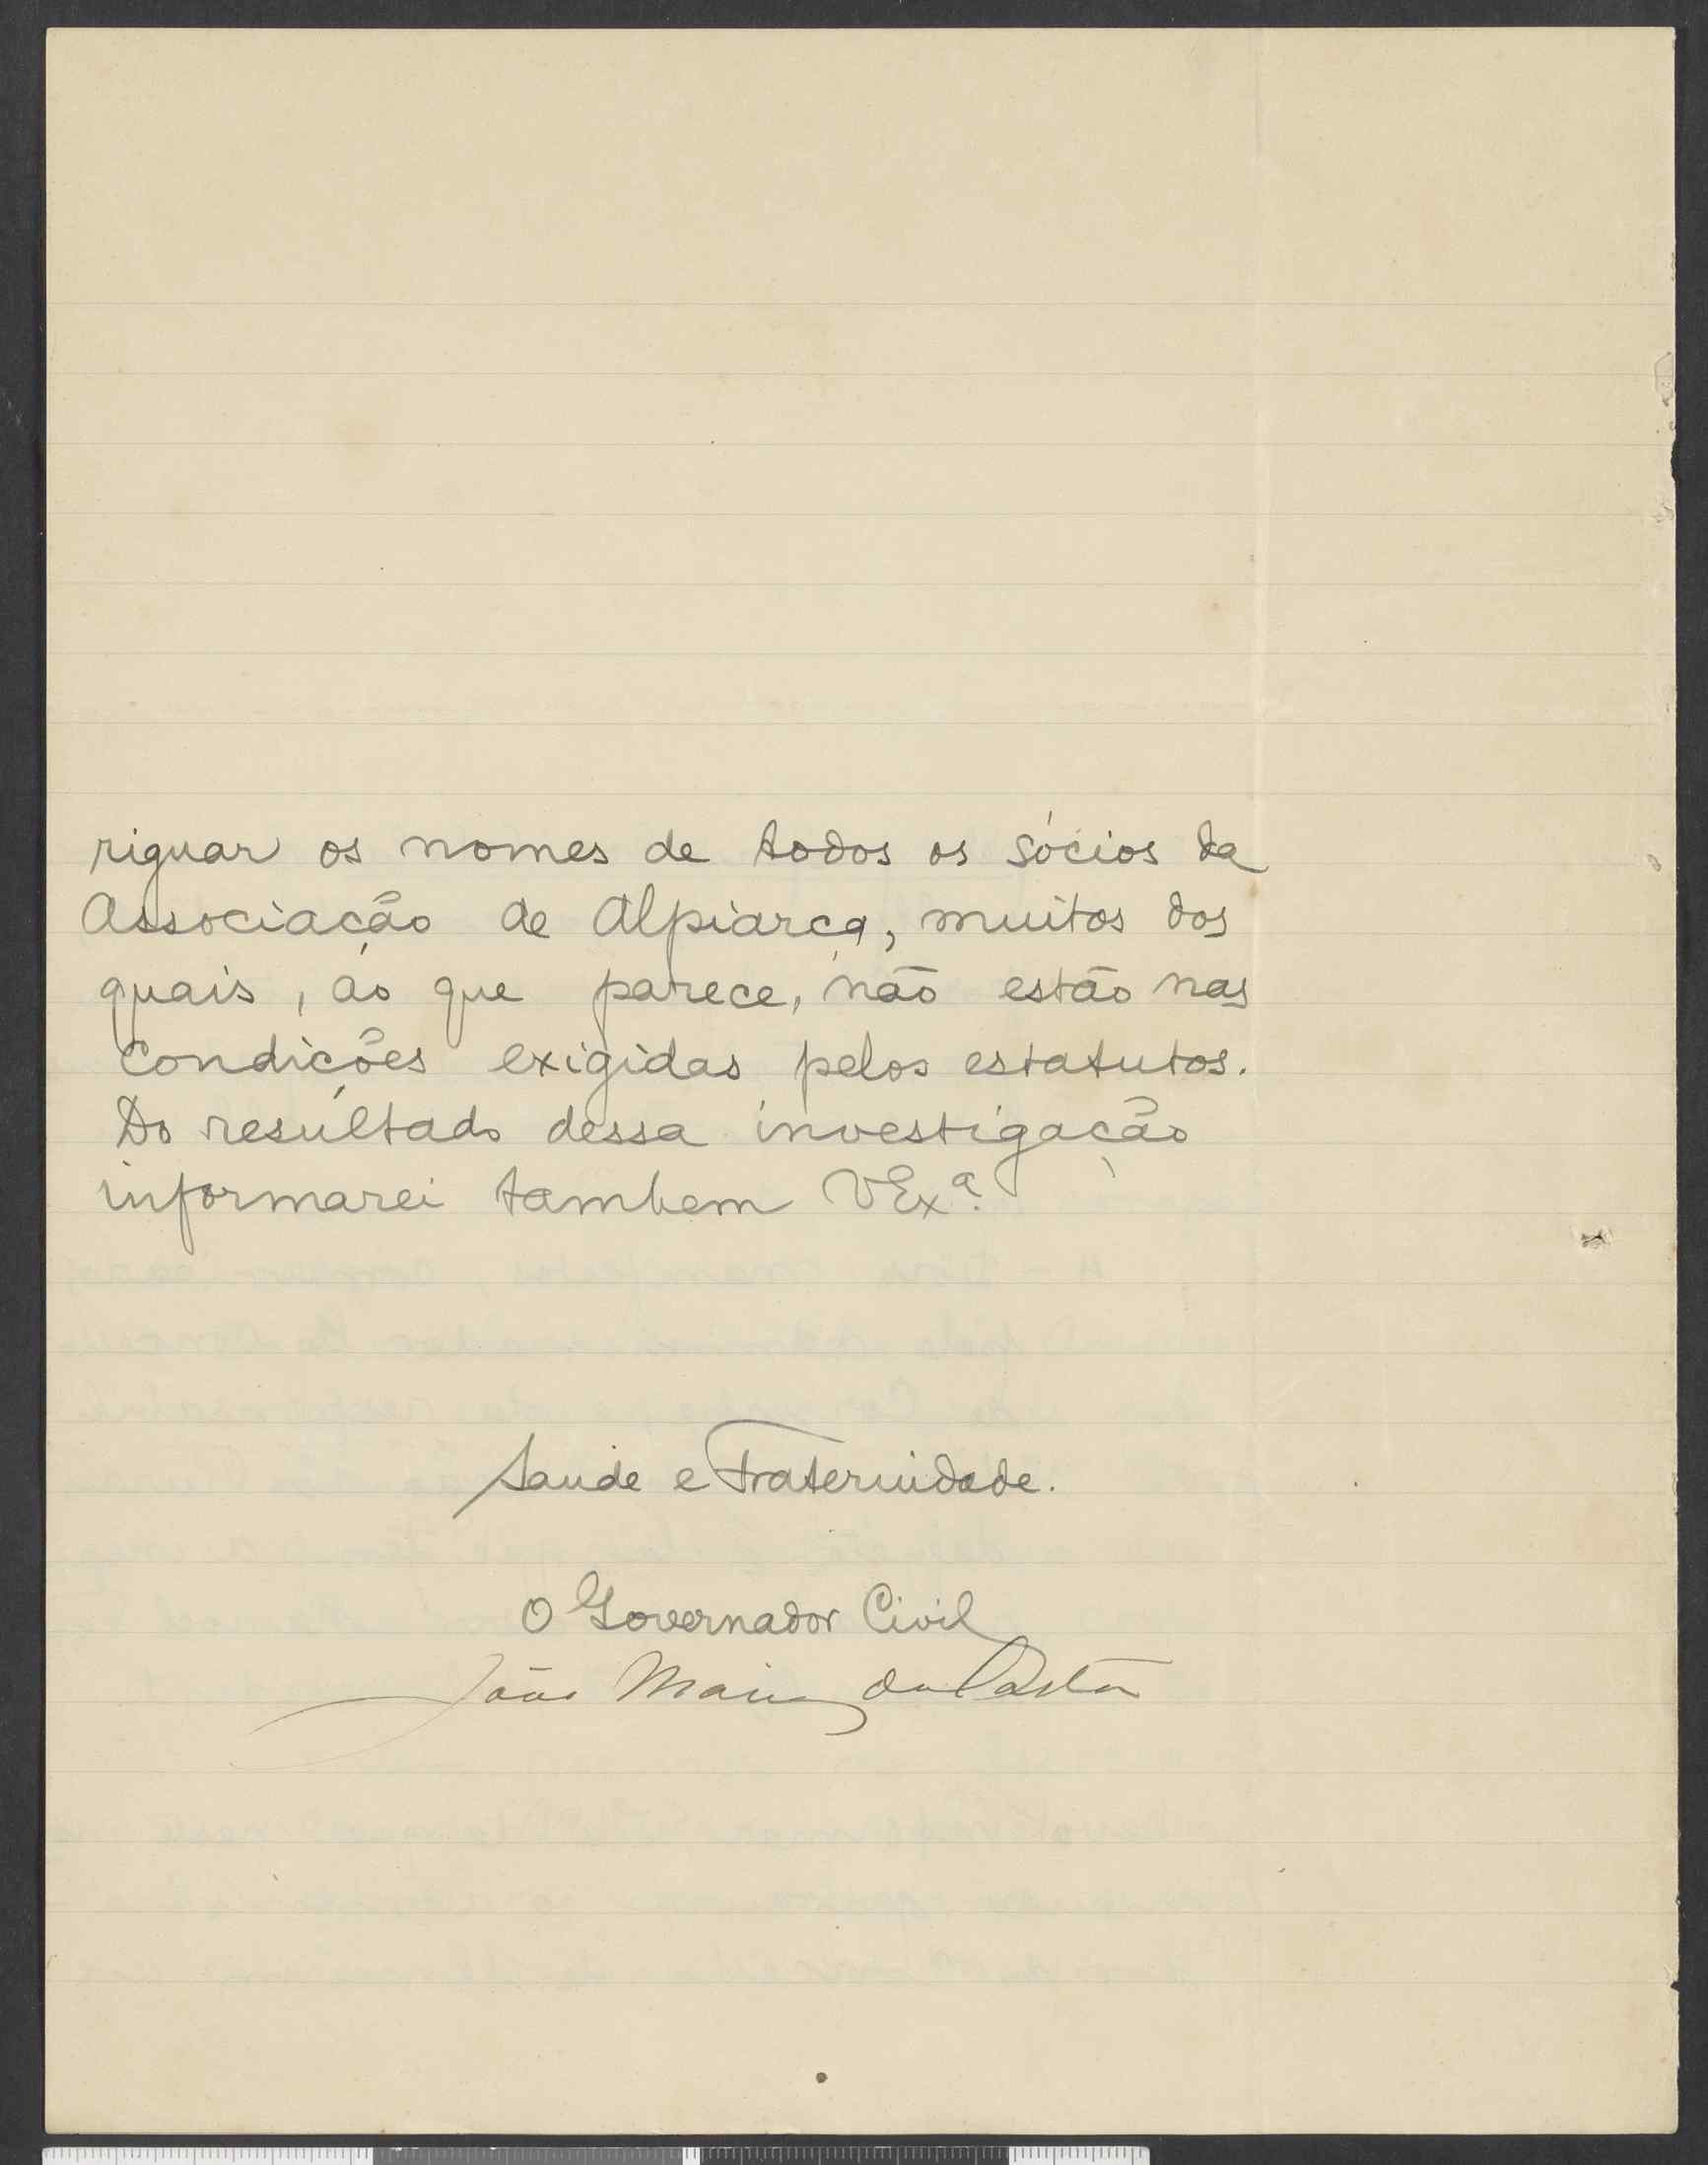 riguar os nomes de todos os sócios da
Associação de Alpiarça, muitos dos
quais, ao que parece, não estão nas
condições exigidas pelos estatutos.
Do resultado dessa investigação
informarei tambem VExª.
Saude e Fraternidade.
O Governador Civil
João Maria da Costa